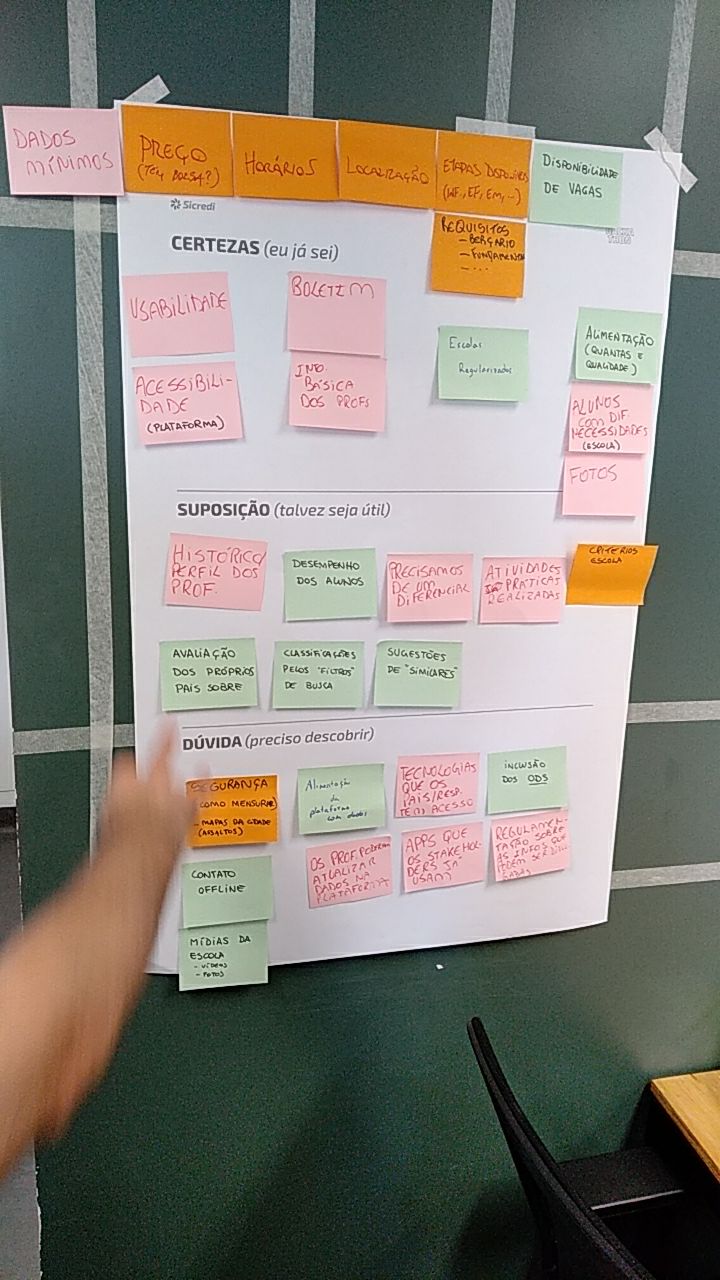 DADOS
MÍNIMOS
PREÇO
(TEM BOLSA?)
HORÁRIOS
LOCALIZAÇÃO
ETAPAS DISPONÍVEIS
EF, EM, ...)
DISPONIBILIDADE
DE VAGAS
REQUISITOS
- BERÇARIO
- FUNDAMENTAL
- ...
Sicredi
CERTEZAS (eu já sei)
USABILIDADE
BOLETIM
ACESSIBILI-
DADE
(PLATAFORMA)
INFO.
BÁSICA
DOS PROFS
Escolas
Regularizadas
ALIMENTAÇÃO
(QUANTAS E
QUALIDADE)
ALUNOS
COM DIF.
NECESSIDADES
(ESCOLA)
FOTOS
SUPOSIÇÃO (talvez seja útil)
HISTÓRICO/
PERFIL DOS
PROF.
DESEMPENHO
DOS ALUNOS
PRECISAMOS
DE UM
DIFERENCIAL
ATIVIDADES
PRÁTICAS
REALIZADAS
CRITÉRIOS
ESCOLA
AVALIAÇÃO
DOS PRÓPRIOS
PAIS SOBRE
CLASSIFICAÇÕES
PELOS "FILTROS"
DE BUSCA
SUGESTÕES
DE "SIMILARES"
DÚVIDA (preciso descobrir)
SEGURANÇA
COMO MENSURAR
- MAPAS DA CIDADE
(ASSALTOS)
Alimentação
da
plataforma
com dados
TECNOLOGIAS
QUE OS
PAIS/RESP.
TEM ACESSO
INCLUSÃO
DOS ODS
CONTATO
OFFLINE
OS PROF. PODERÃO
ATUALIZAR
DADOS NA
PLATAFORMA?
APPS QUE
OS STAKEHOL-
DERS JÁ
USAM?
REGULAMEN-
TAÇÃO SOBRE
AS INFOS QUE
PODEM SER
MÍDIAS DA
ESCOLA
- VÍDEOS
- FOTOS